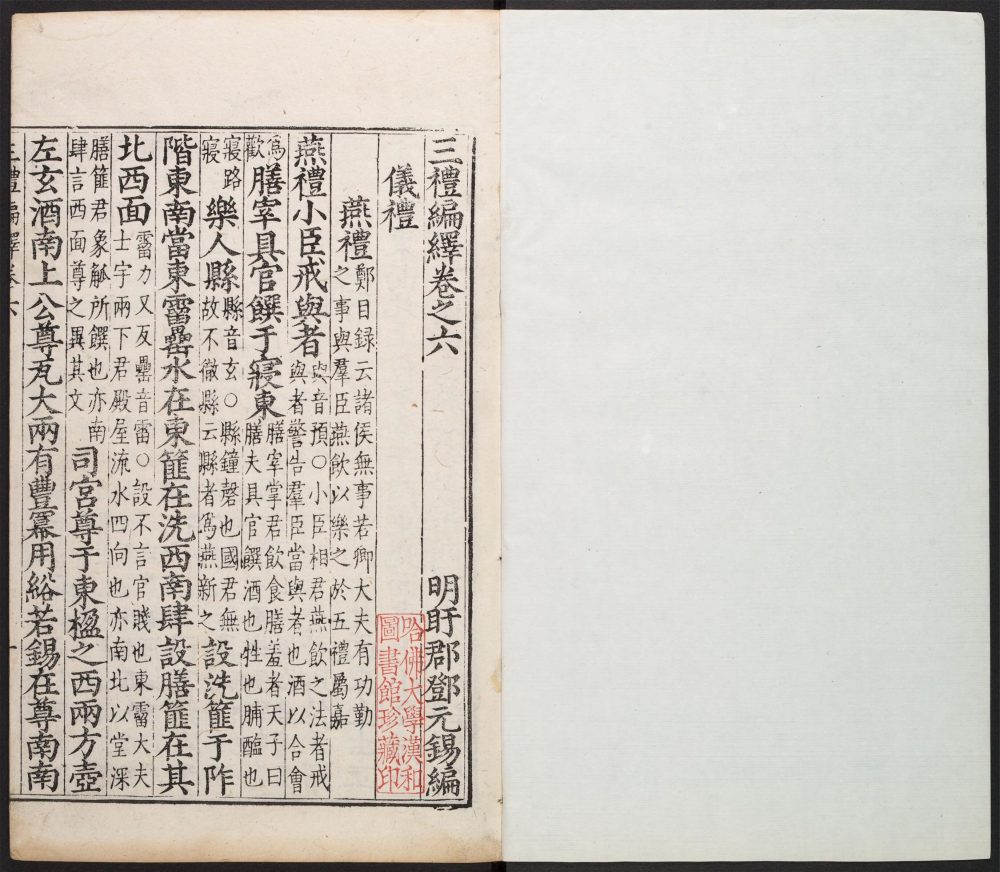 三禮編繹卷之六　明盱郡鄧元錫編
儀禮
燕禮
鄭目録云諸侯無事若卿大夫有功勤
之事與羣臣燕飲以樂之於五禮屬嘉
燕禮小臣戒與者
與音預○小臣相君燕飲之法者戒
與者警告羣臣當與者也酒以合會
爲
歡
膳宰具官饌于寢東
膳宰掌君飲食膳羞者天子曰
膳夫具官饌酒也牲也脯醢也
寢路
寢
樂人縣
縣音玄○縣鐘磬也國君無
故不徹縣云縣者爲燕新之
設洗篚于阼
階東南當東霤罍水在東篚在洗西南肆設膳篚在其
北西面
霤力又反罍音雷○設不言官賤也東霤大夫
士宇兩下君殿屋流水四向也亦南北以堂深
膳篚君象觚所饌也亦南
肆言西面尊之異其文
司宮尊于東楹之西兩方壺
左玄酒南上公尊瓦大兩有豐冪用綌若錫在尊南南
哈佛大學漢和
圖書館珍藏印